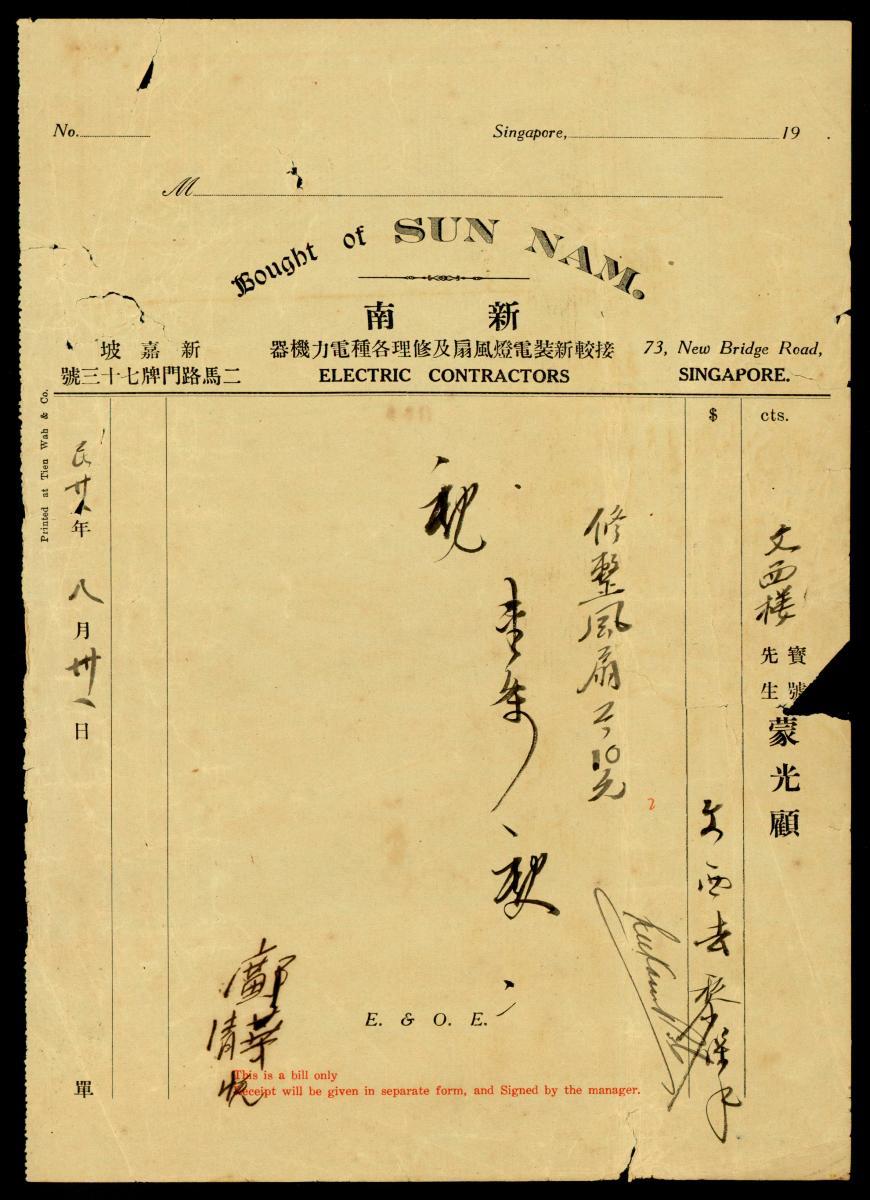 No.
Singapore, 19
M
Bought of SUN NAM.
南新
坡嘉新
器機力電種各理修及扇風燈電裝新較接
73, New Bridge Road,
號三十七牌門路馬二
ELECTRIC CONTRACTORS
SINGAPORE.
$ cts.
文西樓
寶號
先生
蒙光顧
修整風扇工10元
民廿八年八月卅一日
單
Printed at Tien Wah & Co.
鄺清華
E. & O. E.
This is a bill only
Receipt will be given in separate form, and Signed by the manager.